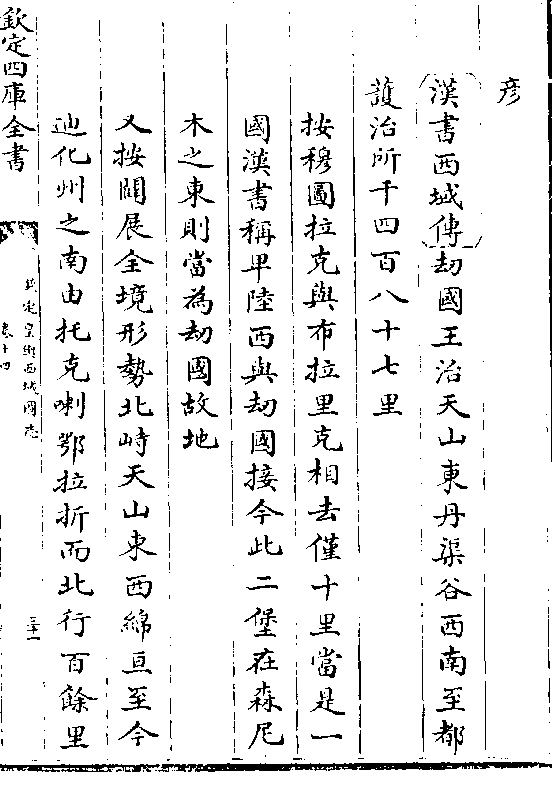 彦
漢書西域傳劫國王治天山東丹渠谷西南至都
護治所千四百八十七里
按穆圖拉克與布拉里克相去僅十里當是一
國漢書稱卑陸西與劫國接今此二堡在森尼
木之東則當為劫國故地
又按闢展全境形勢北峙天山東西綿亘至今
迪化州之南由托克喇鄂拉折而北行百餘里
欽定四庫全書
欽定皇輿西域圖志
卷十四
三十一